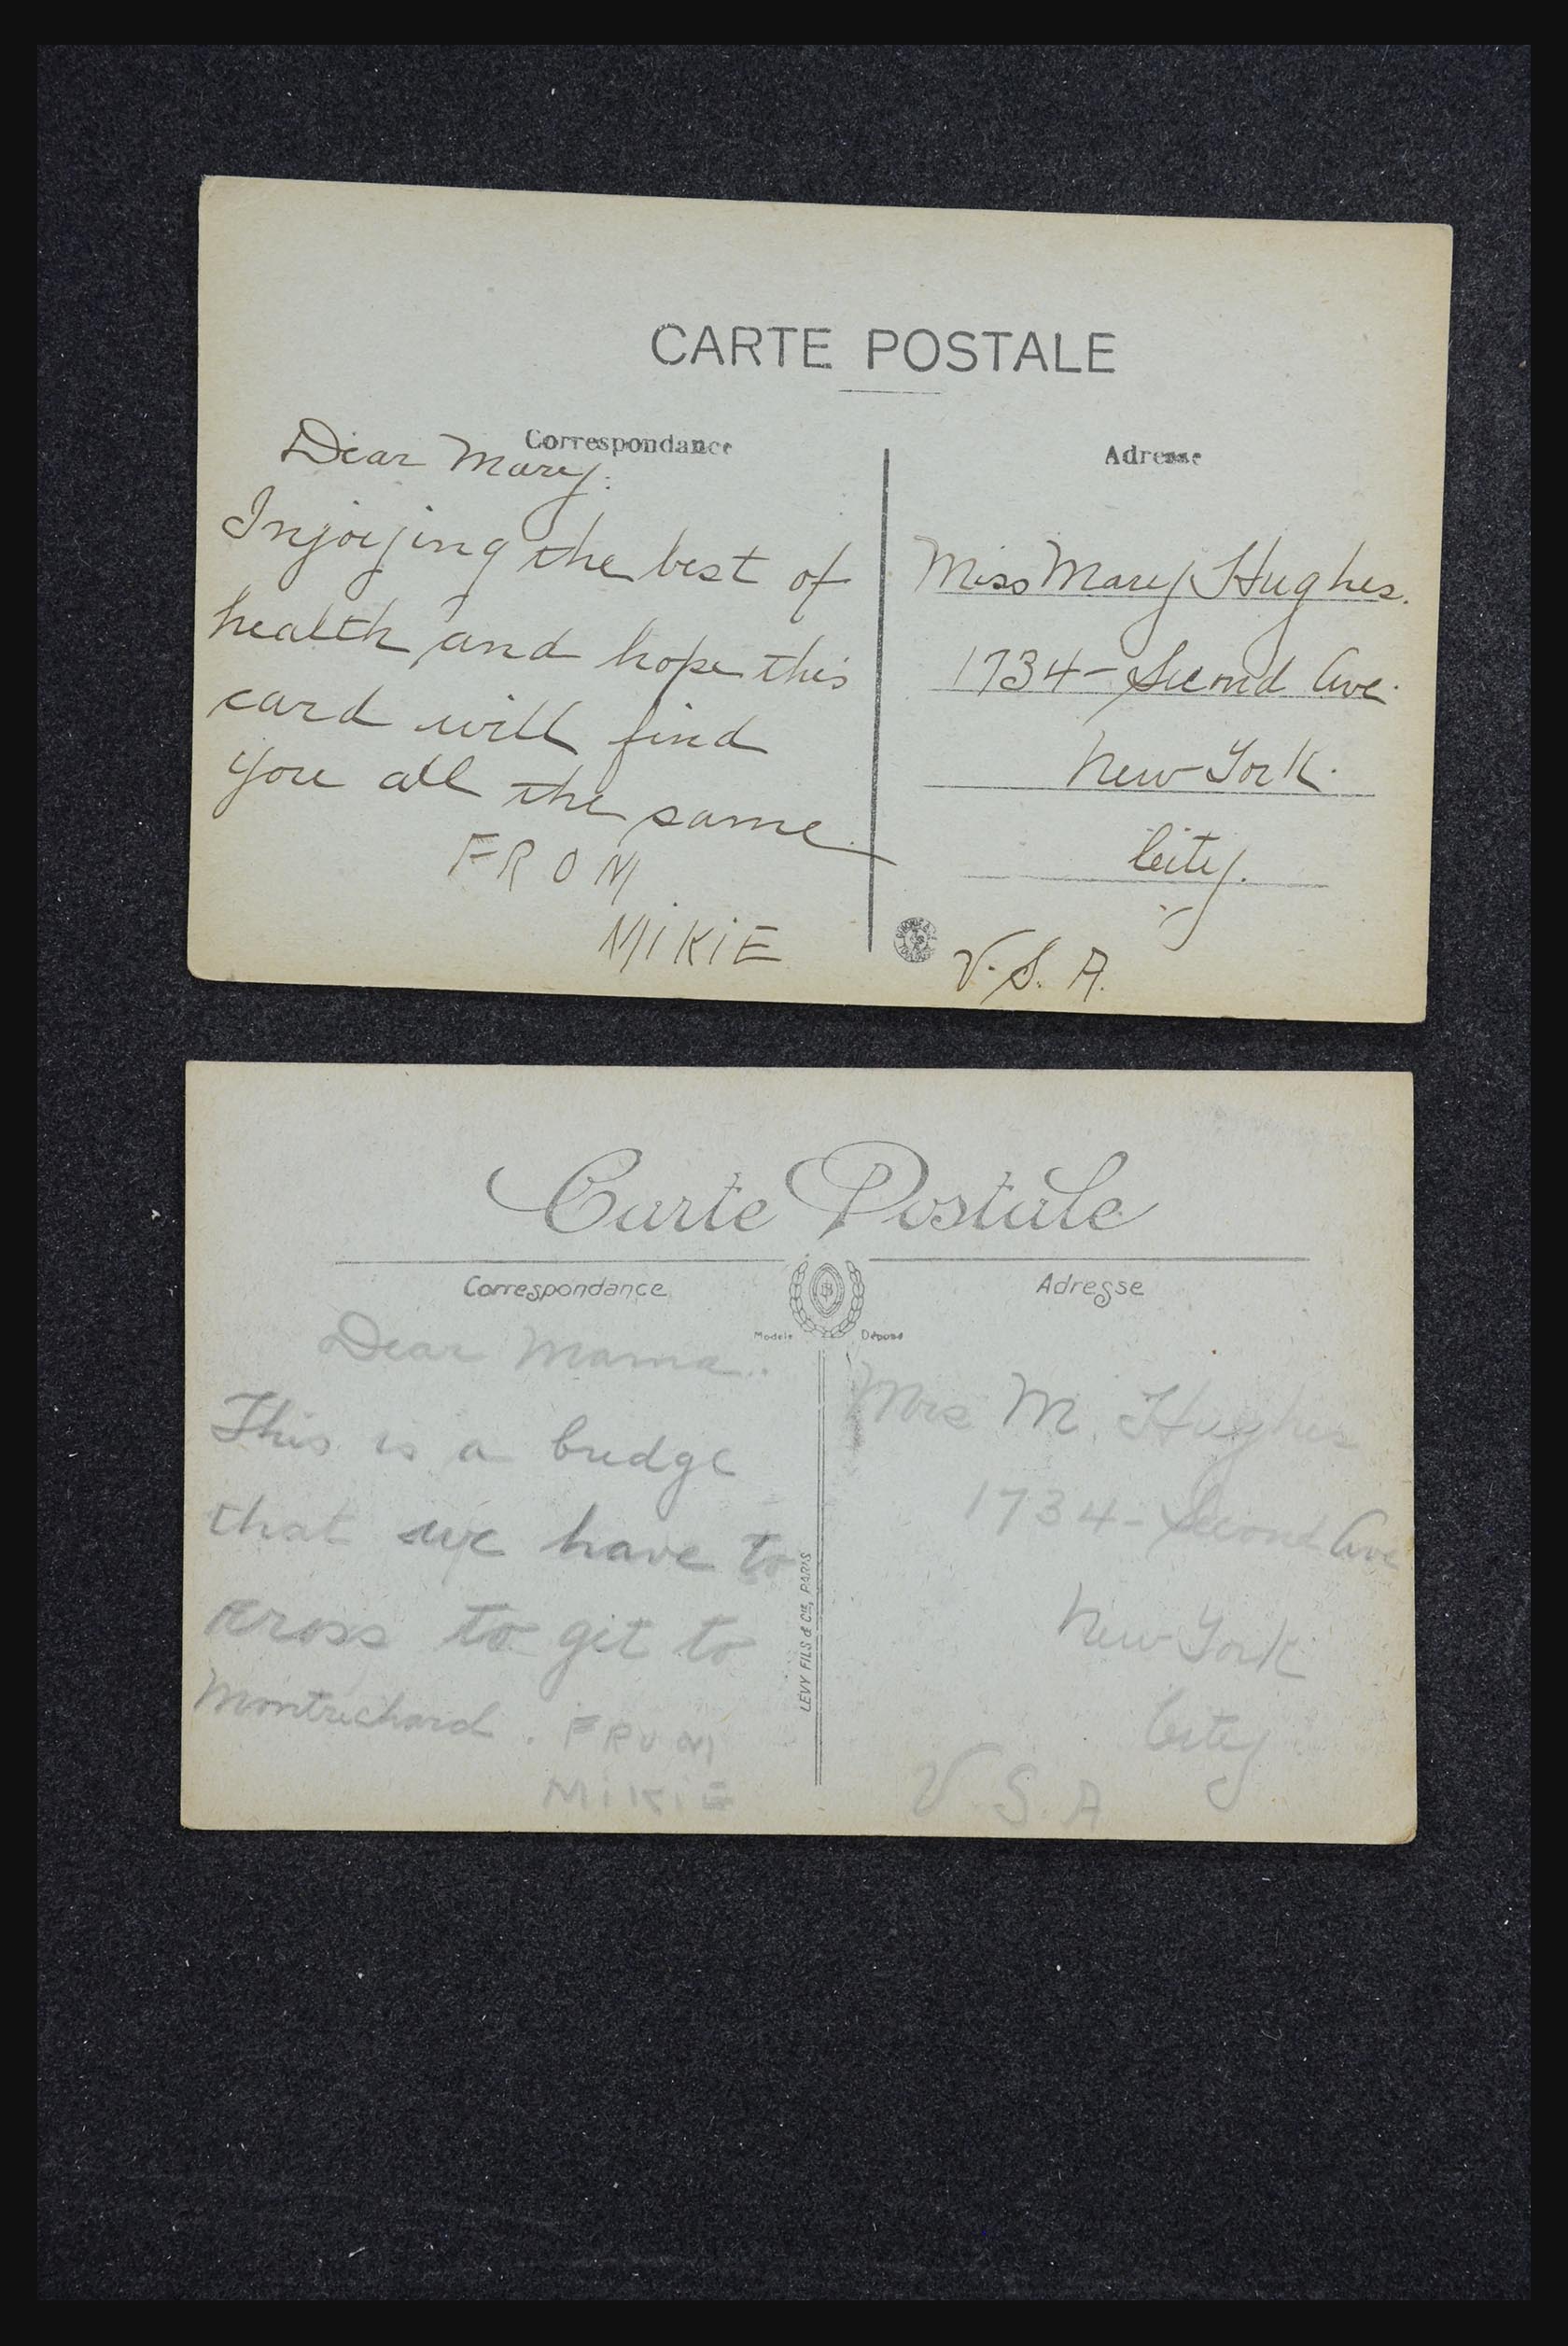 CARTE POSTALE
Correspondance
Adresse
Dear Mary.
Injoying the best of
health and hope this
card will find
you all the same.
FROM
MIKIE
Miss Mary Hughes.
1734 - Second Ave.
New York.
City.
U.S.A.
Carte Postale
Correspondance
Adresse
Modèle Déposé
Dear Mama.
This is a bridge
that we have to
cross to git to
Montrichard. FROM
MIKIE
LEVY FILS & Cie, PARIS
Mrs M. Hughes
1734 - Second Ave
New York
City
U S A